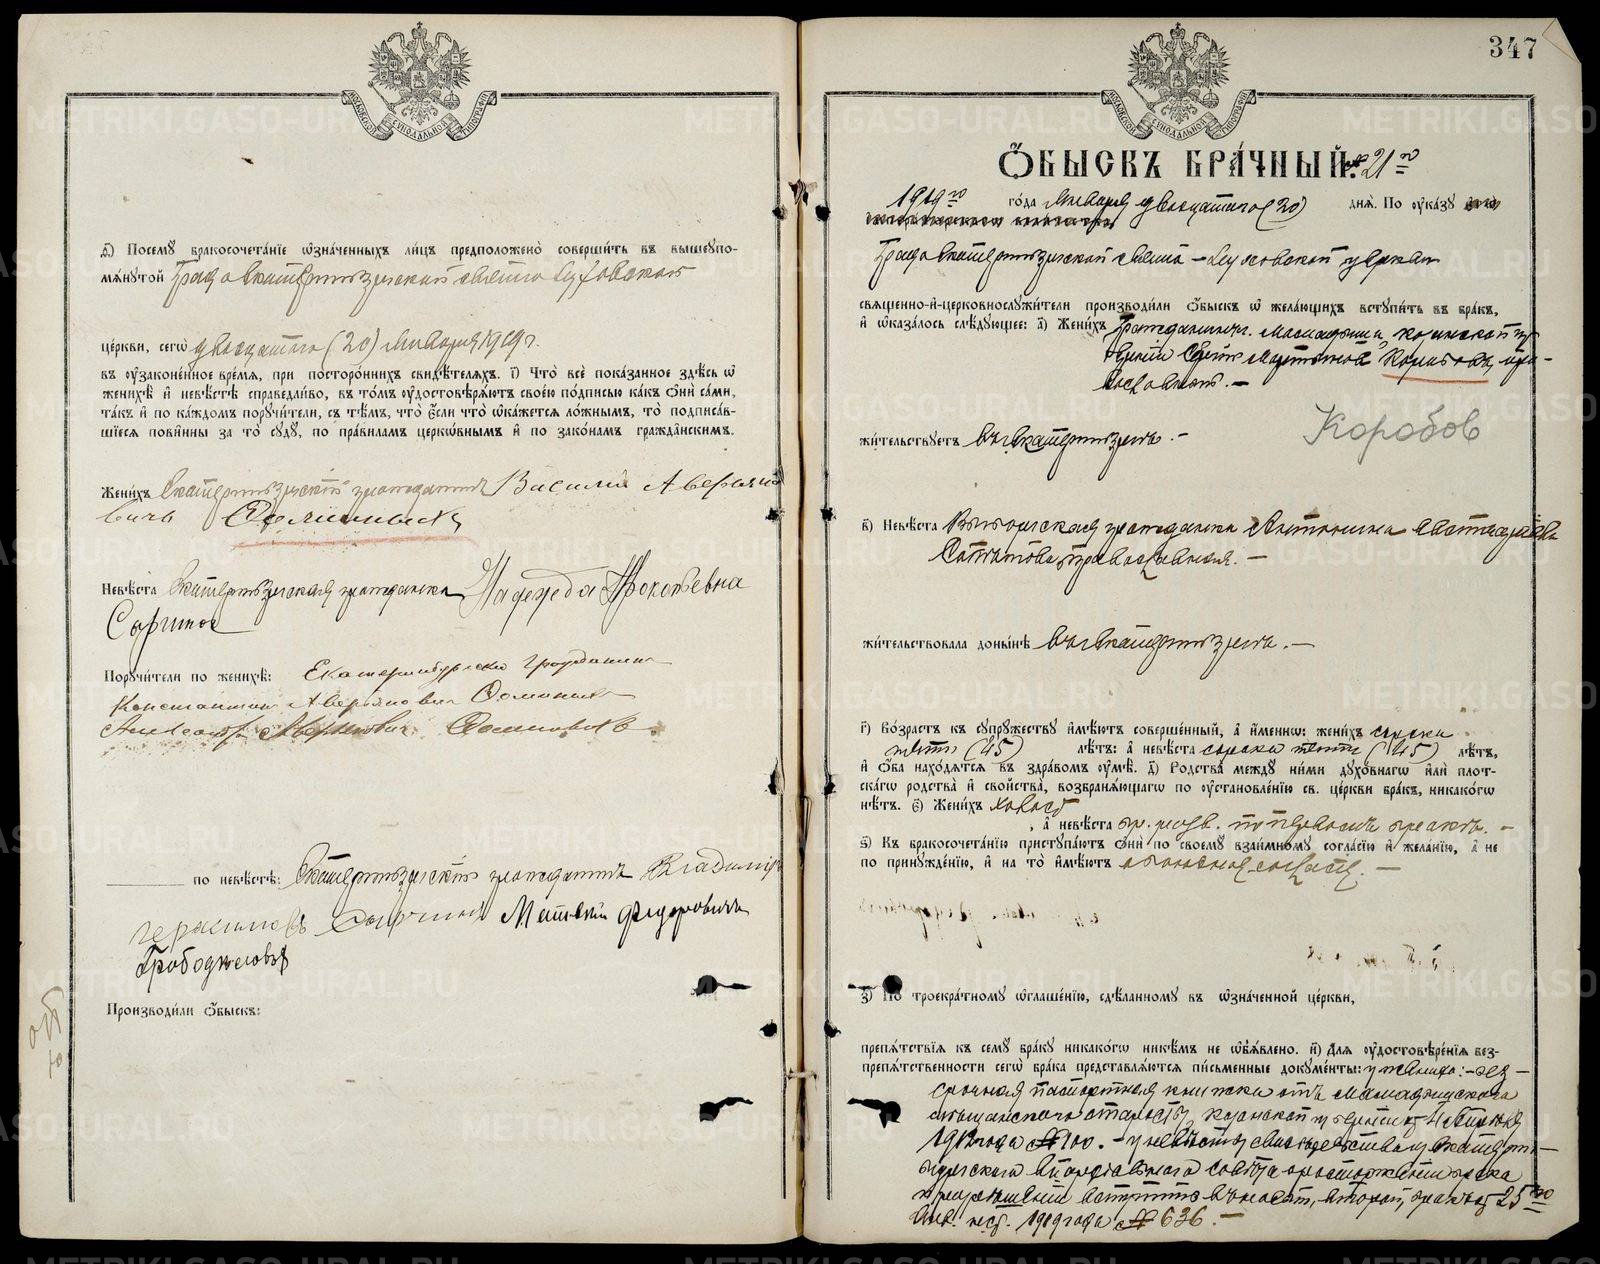 МОСКОВСКОЙ СѴНОДАЛЬНОЙ ТИПОГРАФІИ
ѳ҃) Посемꙋ бракосочета́нїе ѡ҆зна́ченныхъ ли́цъ предположено̀ соверши́ть въ вышеꙋпо-
мѧ́нꙋтой Градо Екатеринбургской Свято Духовской
це́ркви, сегѡ̀ двадцатого (20) Января 1919 г.
въ ᲂу҆зако́ненное вре́мѧ, при посторо́ннихъ свидѣ́телѧхъ. і҃) Что̀ всѐ пока́занное здѣ́сь ѡ҆
женихѣ̀ и҆ невѣ́стѣ справедли́во, въ то́мъ ᲂу҆достовѣрѧ́ютъ свое́ю по́дписью ка́къ ѻ҆нѝ са́ми,
та́къ и҆ по ка́ждомъ порꙋчи́тели, съ тѣ́мъ, что̀ є҆́сли что̀ ѡ҆ка́жется ло́жнымъ, то̀ подписа́в-
шїесѧ пови́нны за то̀ сꙋдꙋ̀, по пра́виламъ церко́внымъ и҆ по зако́намъ гражда́нскимъ.
Жени́хъ Екатеринбургскій гражданинъ Василій Аверьяно
вичъ
Невѣ́ста Екатеринбургская гражданка Надежда Прокопьевна
Порꙋчи́тели по женихѣ̀: Екатеринбургски гражданин
Константин Аверьянович
Александр Аверьянович
по невѣ́стѣ: Екатеринбургскій гражданинъ Владимір
Федоровичъ
Производи́ли ѻ҆́быскъ:
347
МОСКОВСКОЙ СѴНОДАЛЬНОЙ ТИПОГРАФІИ
Ѻ҆́БЫСКЪ БРА́ЧНЫЙ. № 21й
1919го го́да Января двадцатого (20) днѧ̀. По ᲂу҆ка́зꙋ
Градо Екатеринбургской Свято-Духовской церкви
свѧще́нно-и҆-церковнослꙋжи́тели производи́ли ѻ҆́быскъ ѡ҆ жела́ющихъ вступи́ть въ бра́къ,
и҆ ѡ҆каза́лось слѣ́дꙋющее: а҃) Жени́хъ Гражданинъ г. Мамадыша, Казанской гу-
берніи Сергѣй Мартыновъ Коробовъ, пра-
вославный. –
Коробов
жи́тельствꙋетъ въ г. Екатеринбургѣ. –
в҃) Невѣ́ста гражданка Антонина
православная. –
жи́тельствовала доны́нѣ въ г. Екатеринбургѣ. –
г҃) Во́зрастъ къ сꙋпрꙋ́жествꙋ и҆мѣ́ютъ соверше́нный, а҆ и҆́меннѡ: жени́хъ сорока
пяти (45) лѣ́тъ: а҆ невѣ́ста сорока пяти (45) лѣ́тъ,
и҆ ѻ҆́ба нахо́дятсѧ въ здра́вомъ ᲂу҆мѣ̀. д҃) Родства̀ междꙋ̀ ни́ми дꙋхо́внагѡ и҆лѝ пло́т-
скагѡ родства̀ и҆ сво́йства, возбранѧ́ющагѡ по ᲂу҆становле́нїю св. це́ркви бра́къ, никако́гѡ
нѣ́тъ. є҃) Жени́хъ холост
, а҆ невѣ́ста гр. разв. по первомъ бракѣ. –
ѕ҃) Къ бракосочета́нїю приступа́ютъ ѻ҆нѝ по своемꙋ̀ взаи́мномꙋ согла́сїю и҆ жела́нїю, а҆ не
по принꙋжде́нїю, и҆ на то̀ и҆мѣ́ютъ взаимное согласіе. –
з҃) По троекра́тномꙋ ѡ҆глаше́нїю, сдѣ́ланномꙋ въ ѡ҆зна́ченной це́ркви,
препѧ́тствїѧ къ семꙋ̀ бра́кꙋ никако́гѡ никѣ́мъ не ѡ҆б̾ѧ́влено. и҃) Длѧ ᲂу҆достовѣре́нїѧ без-
препѧ́тственности сегѡ̀ бра́ка представлѧ́ютсѧ пи́сьменные докꙋме́нты: у жениха: – без-
срочная паспортная книжка отъ Мамадышскаго
мѣщанскаго старосты, Казанской губерніи, Апрѣля
1912 года № 100. – у невѣсты свидѣтельство Екатерин-
бургскаго Епархіальнаго совѣта о расторженіи брака
и разрѣшеніи вступить въ новый, второй, бракъ 25го
1919 года № 636. –
METRIKI.GASO-URAL.RU